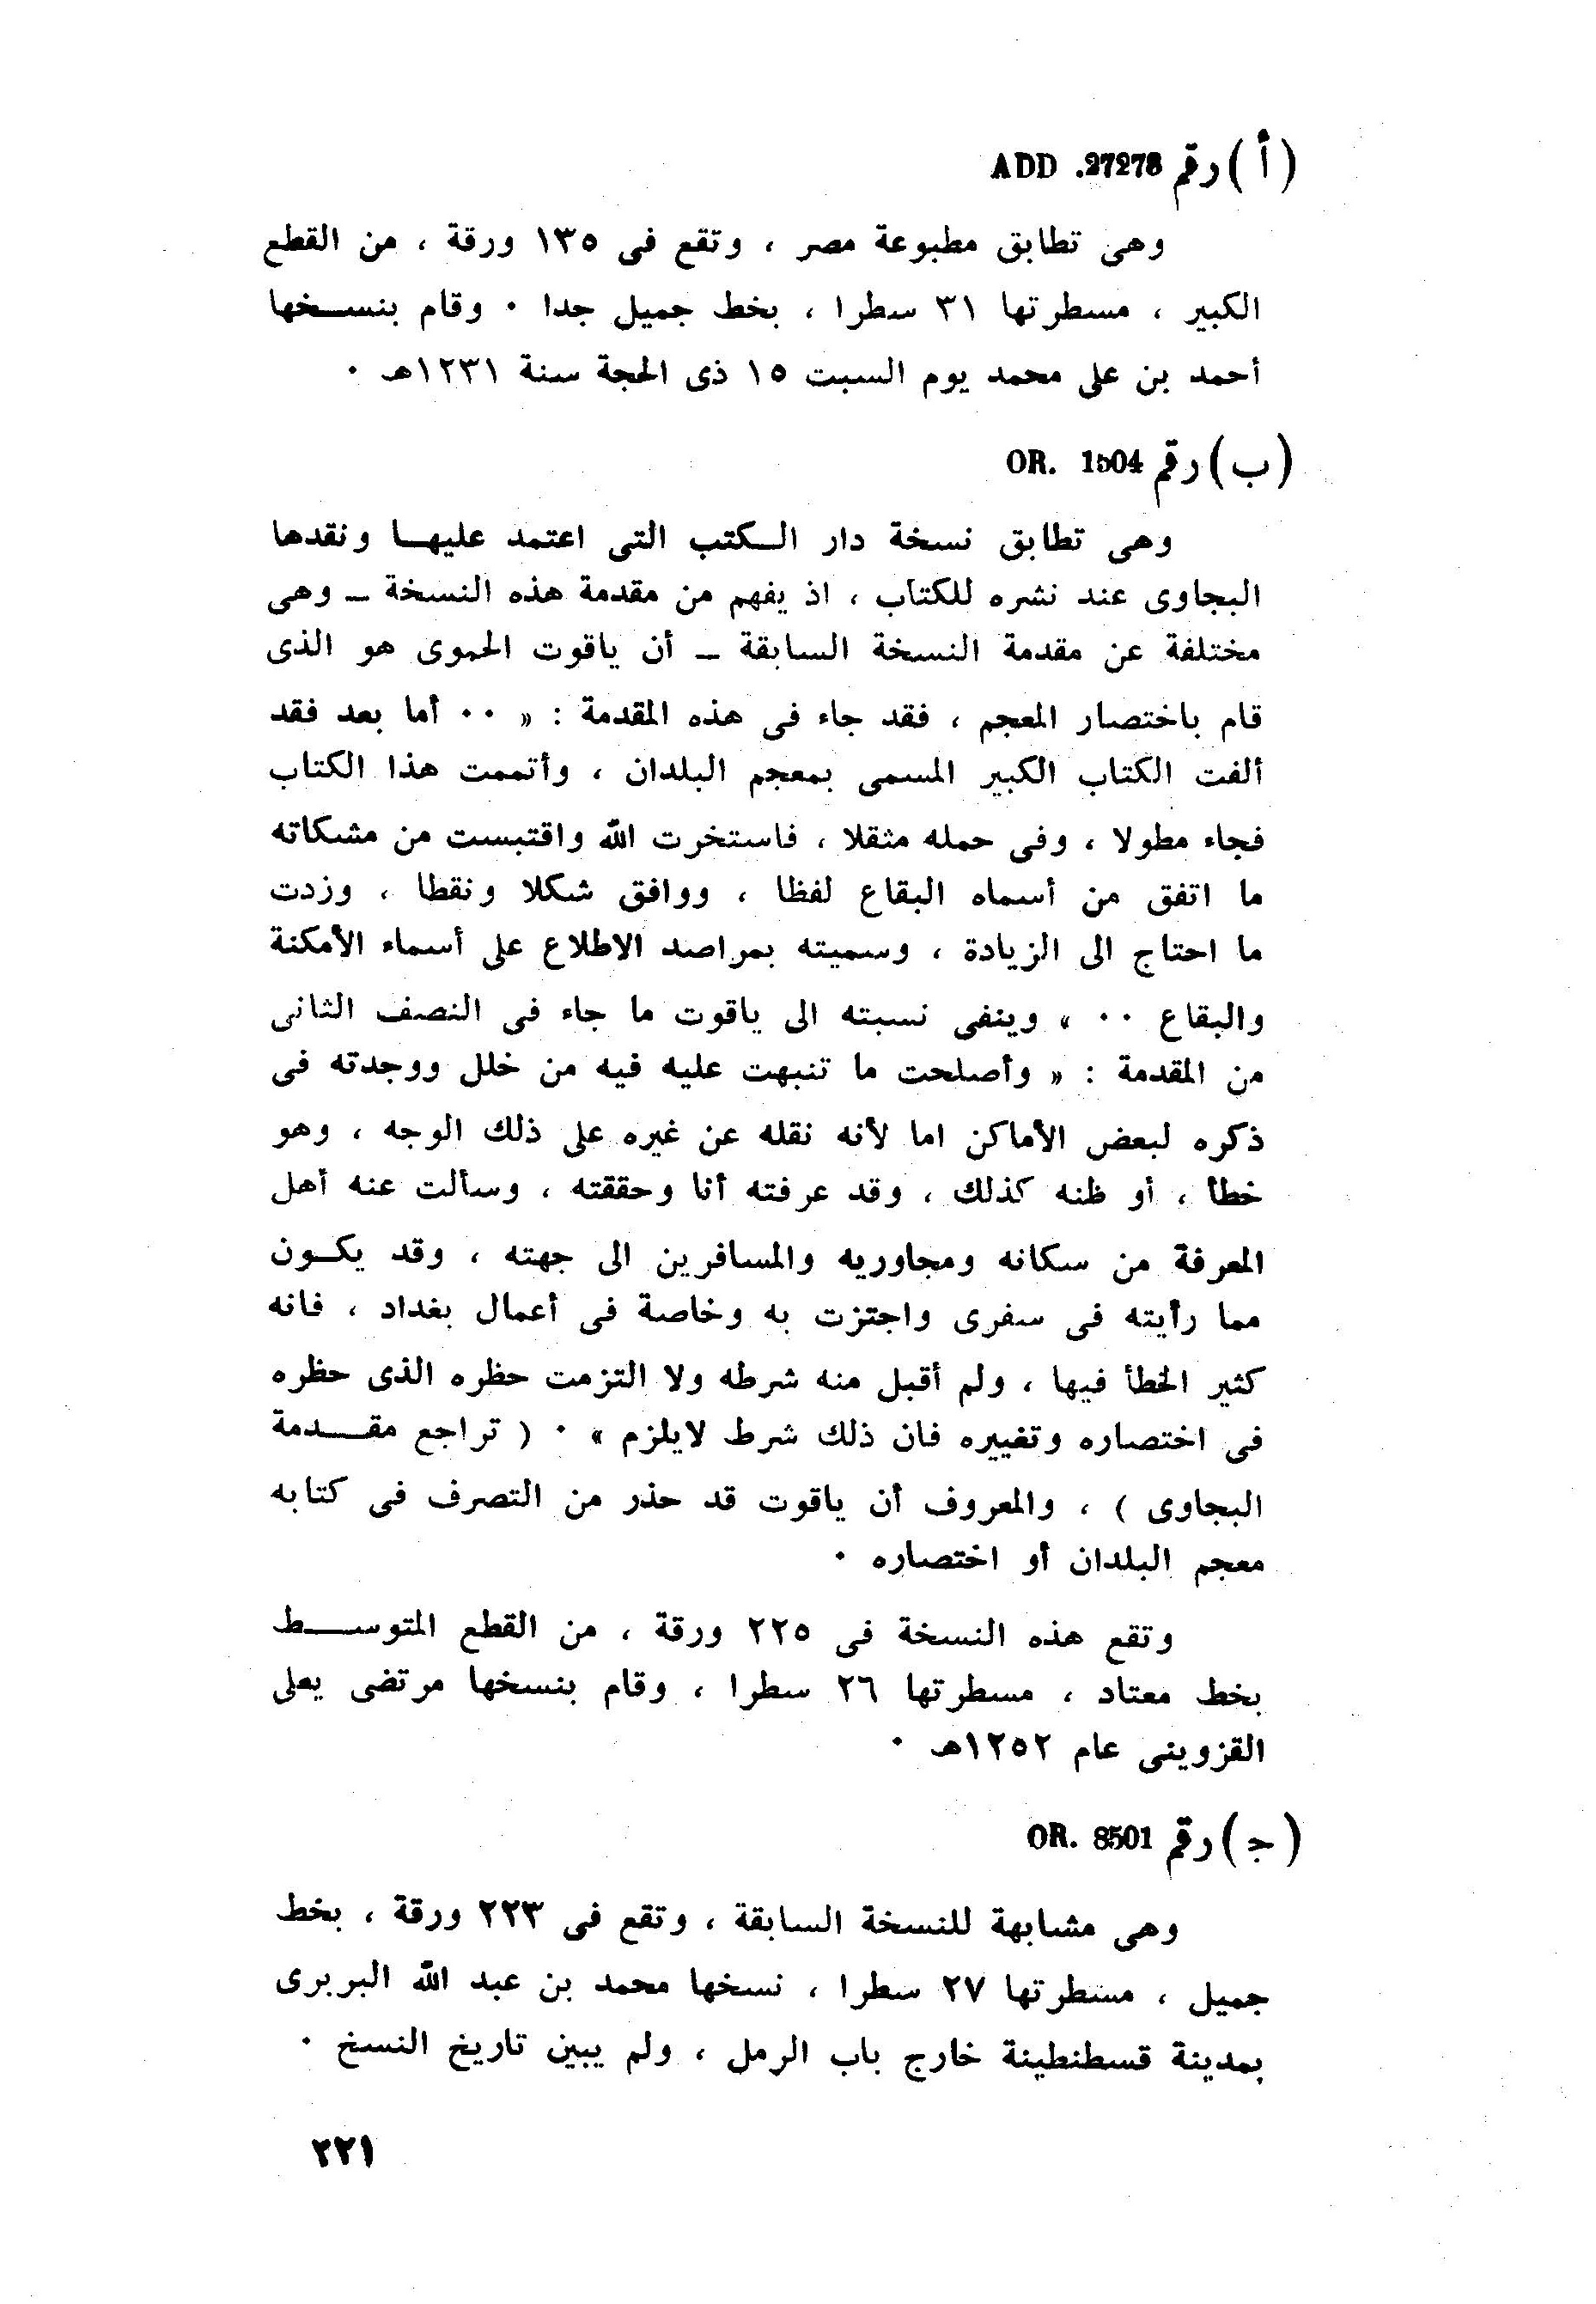 ( أ ) رقم ADD .27278
وهى تطابق مطبوعة مصر ، وتقع فى ١٣٥ ورقة ، من القطع
الكبير ، مسطرتها ٣١ سطرا ، بخط جميل جدا ٠ وقام بنسخها
أحمد بن على محمد يوم السبت ١٥ ذى الحجة سنة ١٢٣١هـ ٠
( ب ) رقم OR. 1504
وهى تطابق نسخة دار الكتب التى اعتمد عليها ونقدها
البجاوى عند نشره للكتاب ، اذ يفهم من مقدمة هذه النسخة ــ وهى
مختلفة عن مقدمة النسخة السابقة ــ أن ياقوت الحموى هو الذى
قام باختصار المعجم ، فقد جاء فى هذه المقدمة : « ٠٠ أما بعد فقد
ألفت الكتاب الكبير المسمى بمعجم البلدان ، وأتممت هذا الكتاب
فجاء مطولا ، وفى حمله مثقلا ، فاستخرت الله واقتبست من مشكاته
ما اتفق من أسماه البقاع لفظا ، ووافق شكلا ونقطا ، وزدت
ما احتاج الى الزيادة ، وسميته بمراصد الاطلاع على أسماء الأمكنة
والبقاع ٠٠ » وينفى نسبته الى ياقوت ما جاء فى النصف الثانى
من المقدمة : « وأصلحت ما تنبهت عليه فيه من خلل ووجدته فى
ذكره لبعض الأماكن اما لأنه نقله عن غيره على ذلك الوجه ، وهو
خطأ ، أو ظنه كذلك ، وقد عرفته أنا وحققته ، وسألت عنه أهل
المعرفة من سكانه ومجاوريه والمسافرين الى جهته ، وقد يكون
مما رأيته فى سفرى واجتزت به وخاصة فى أعمال بغداد ، فانه
كثير الخطأ فيها ، ولم أقبل منه شرطه ولا التزمت حظره الذى حظره
فى اختصاره وتغييره فان ذلك شرط لايلزم » ٠ ( تراجع مقدمة
البجاوى ) ، والمعروف أن ياقوت قد حذر من التصرف فى كتابه
معجم البلدان أو اختصاره ٠
وتقع هذه النسخة فى ٢٢٥ ورقة ، من القطع المتوسط
بخط معتاد ، مسطرتها ٢٦ سطرا ، وقام بنسخها مرتضى يعلى
القزوينى عام ١٢٥٢هـ ٠
( جـ ) رقم OR. 8501
وهى مشابهة للنسخة السابقة ، وتقع فى ٢٢٣ ورقة ، بخط
جميل ، مسطرتها ٢٧ سطرا ، نسخها محمد بن عبد الله البربرى
بمدينة قسطنطينة خارج باب الرمل ، ولم يبين تاريخ النسخ ٠
٢٢١